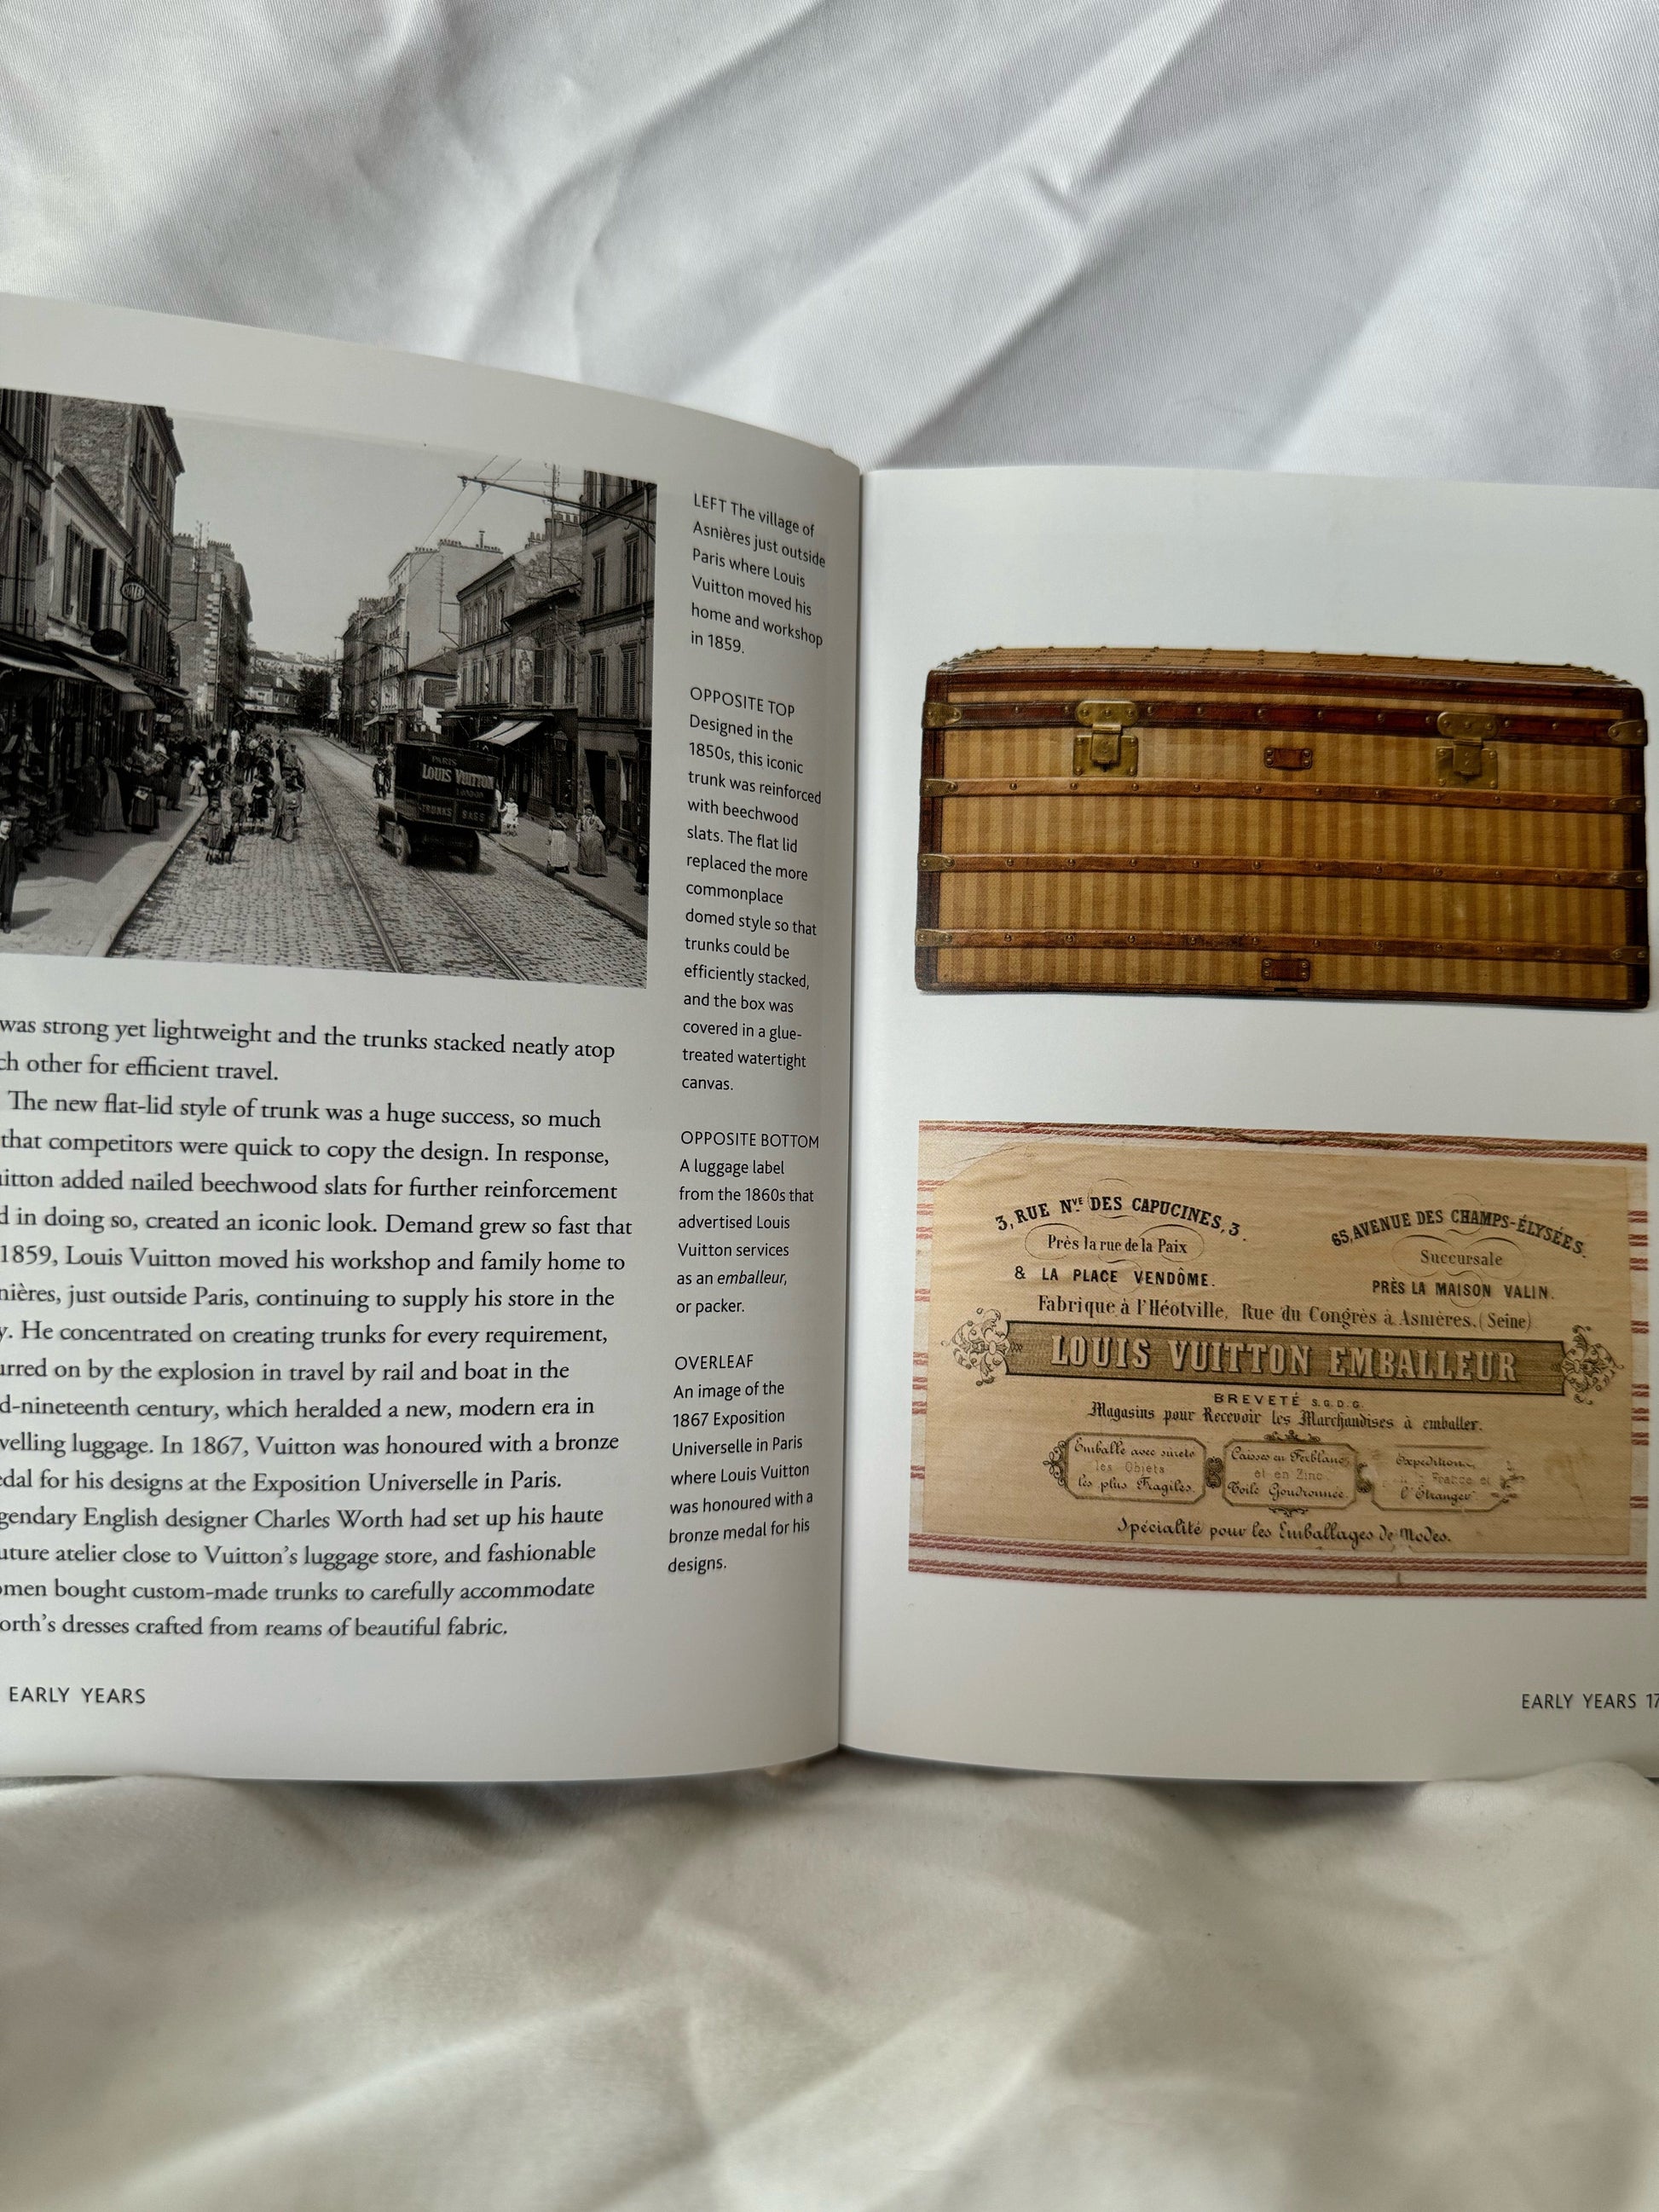 PARIS
LOUIS VUITTON
LONDON
TRUNKS BAGS
LEFT The village of
Asnières just outside
Paris where Louis
Vuitton moved his
home and workshop
in 1859.
OPPOSITE TOP
Designed in the
1850s, this iconic
trunk was reinforced
with beechwood
slats. The flat lid
replaced the more
commonplace
domed style so that
trunks could be
efficiently stacked,
and the box was
covered in a glue-
treated watertight
canvas.
OPPOSITE BOTTOM
A luggage label
from the 1860s that
advertised Louis
Vuitton services
as an emballeur,
or packer.
OVERLEAF
An image of the
1867 Exposition
Universelle in Paris
where Louis Vuitton
was honoured with a
bronze medal for his
designs.
was strong yet lightweight and the trunks stacked neatly atop
ch other for efficient travel.
The new flat-lid style of trunk was a huge success, so much
that competitors were quick to copy the design. In response,
uitton added nailed beechwood slats for further reinforcement
d in doing so, created an iconic look. Demand grew so fast that
1859, Louis Vuitton moved his workshop and family home to
nières, just outside Paris, continuing to supply his store in the
y. He concentrated on creating trunks for every requirement,
urred on by the explosion in travel by rail and boat in the
d-nineteenth century, which heralded a new, modern era in
velling luggage. In 1867, Vuitton was honoured with a bronze
edal for his designs at the Exposition Universelle in Paris.
gendary English designer Charles Worth had set up his haute
uture atelier close to Vuitton's luggage store, and fashionable
omen bought custom-made trunks to carefully accommodate
orth's dresses crafted from reams of beautiful fabric.
EARLY YEARS
3, RUE Nve DES CAPUCINES, 3.
Près la rue de la Paix
& LA PLACE VENDÔME.
65, AVENUE DES CHAMPS-ÉLYSÉES.
Succursale
PRÈS LA MAISON VALIN.
Fabrique à l'Héotville, Rue du Congrès à Asnières. (Seine)
LOUIS VUITTON EMBALLEUR
BREVETÉ S.G.D.G.
Magasins pour Recevoir les Marchandises à emballer.
Emballe avec sureté
les Objets
les plus Fragiles.
Caisses en Ferblanc
et en Zinc
Toile Goudronnée.
Expeditions
France et
l'Étranger
Spécialité pour les Emballages de Modes.
EARLY YEARS 17